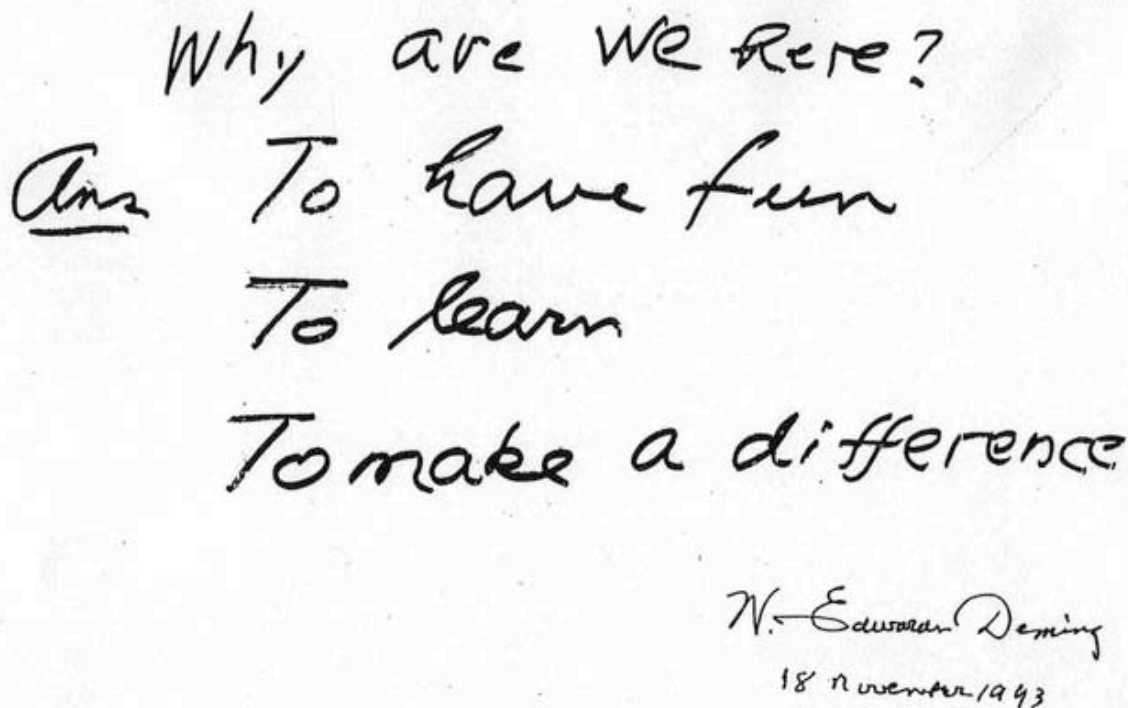 Why are we here?
Ans To have fun
To learn
To make a difference
W. Edwards Deming
18 November 1993